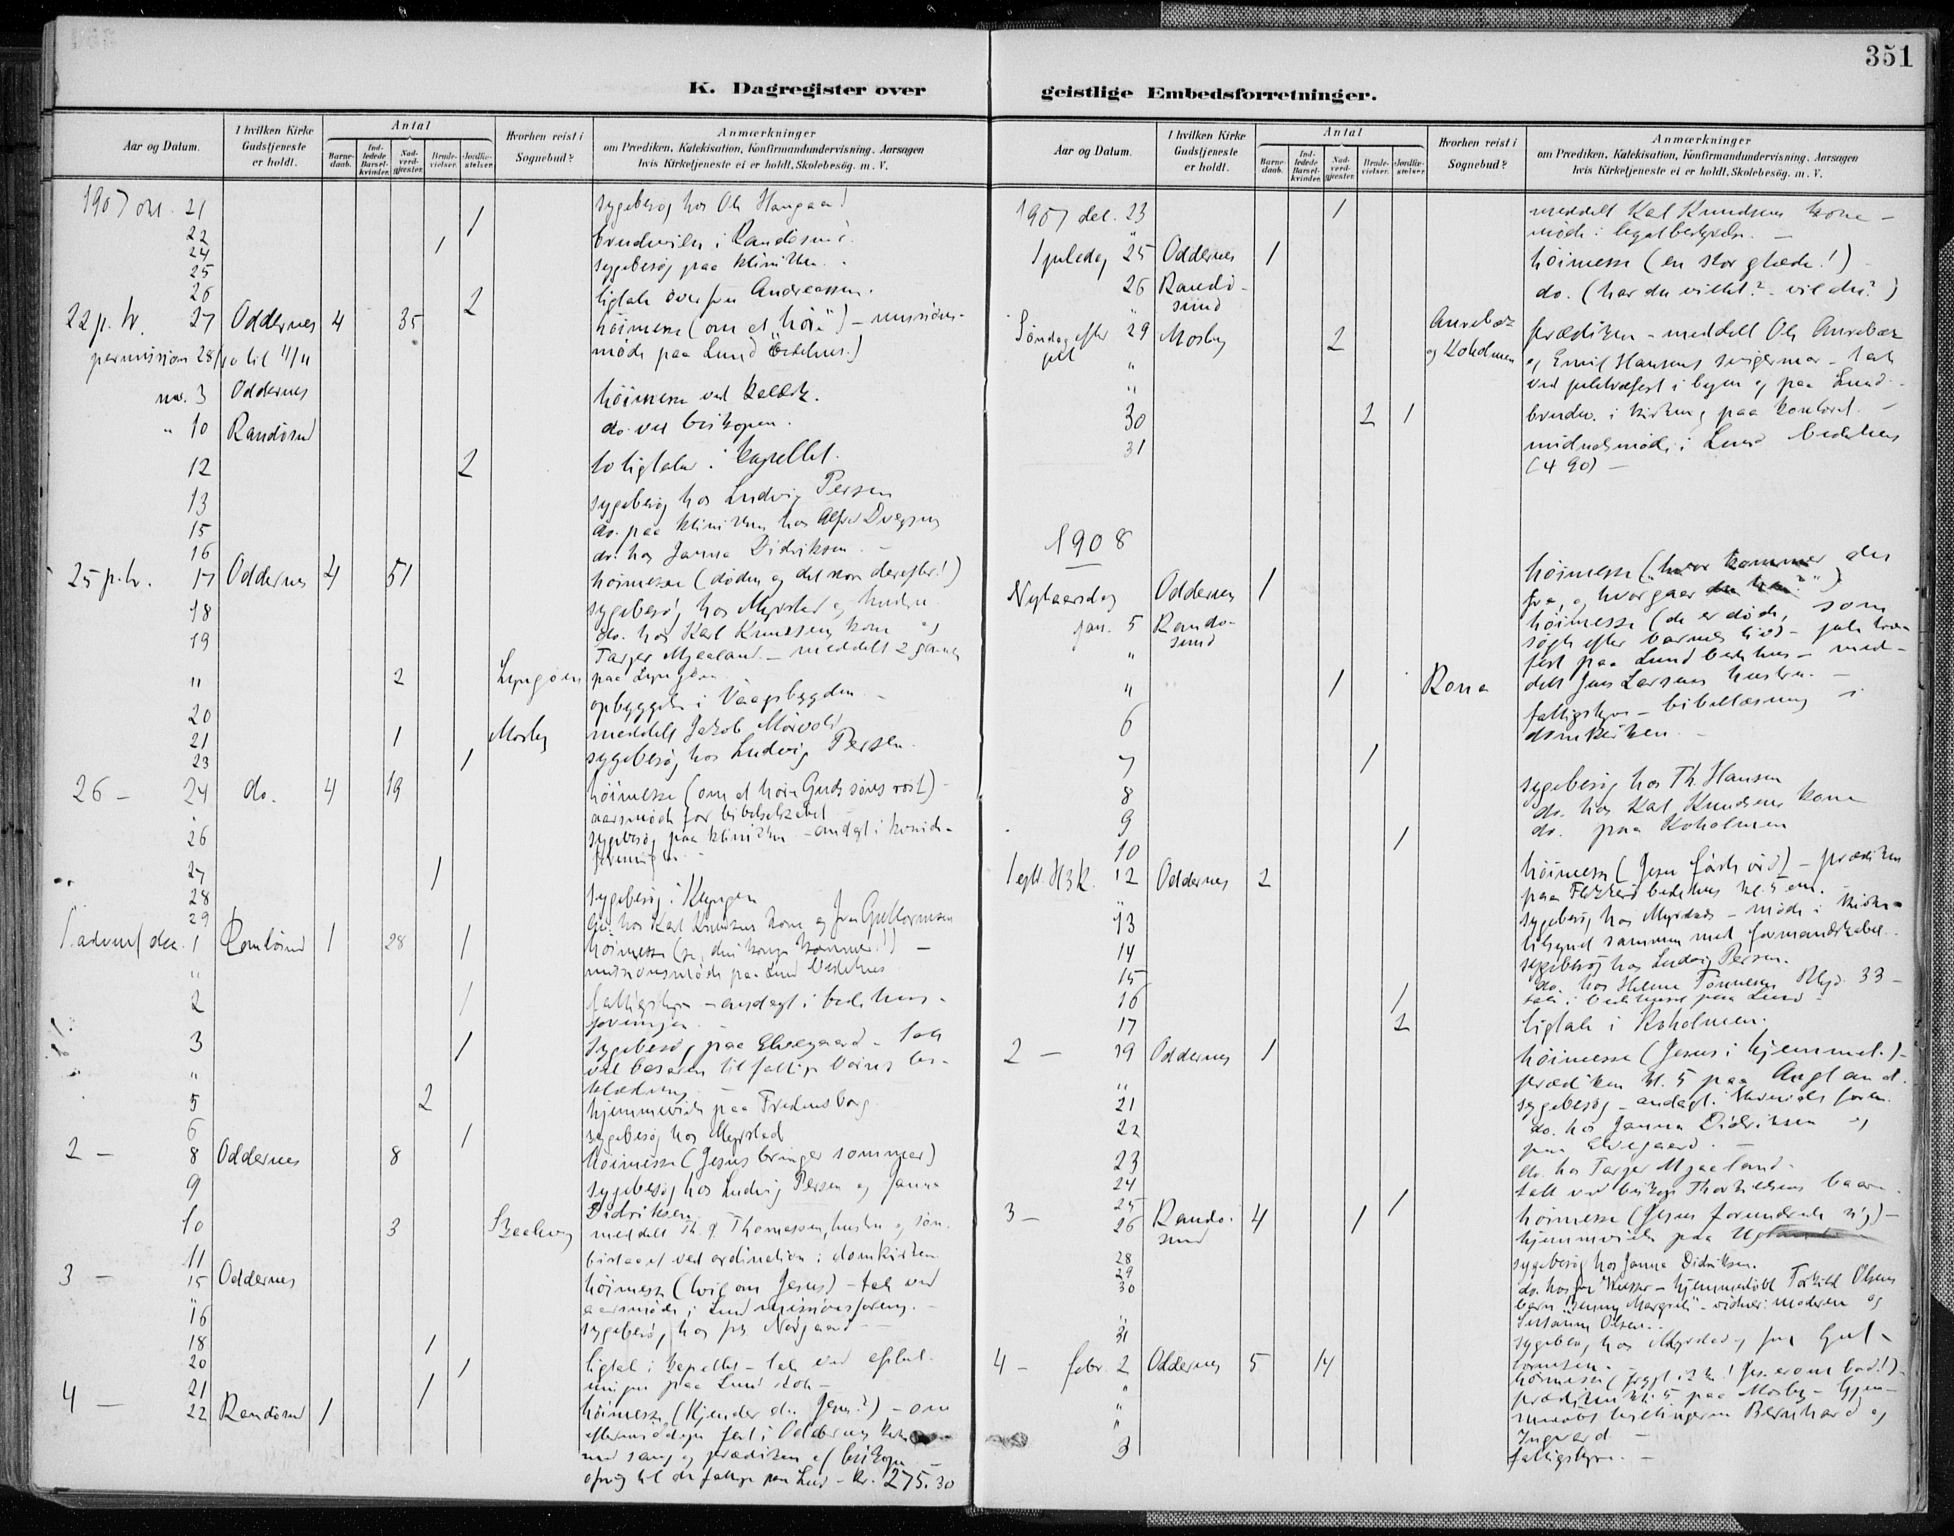 351
K. Dagregister over geistlige Embedsforretninger.
Aar og Datum.
I hvilken Kirke Gudstjeneste er holdt.
Antal
Barne-daab.
Ind-ledede Barsel-kvinder.
Nad-verd-gjester.
Brude-vielser.
Jordfæ-stelser.
Hvorhen reist i Sognebud?
Anmærkninger
om Prædiken, Katekisation, Konfirmandundervisning, Aarsagen
hvis Kirketjeneste ei er holdt, Skolebesøg. m. V.
1907 okt. 21 1 sygebesøg hos Ole Haugaa
22 1 i Randøsund
24 sygebesøg paa kliniken
25
26 2 ligtale over fru Andreassen.
22 p. tr. 27 Oddernes 4 35 høimesse (om at høre) – missions-
møde paa Lund bedehus.)
permission 28/10 til 11/11
nov. 3 Oddernes høimesse ved
" 10 Randøsund do. ved biskopen.
12 2 to ligtaler i kapellet.
13 sygebesøg hos Ludvig Persen
15 do. paa kliniken hos Alfred
16 do. hos Janna Didriksen –
25 p. tr. 17 Oddernes 4 51 høimesse (døden og det store derefter!)
18 sygebesøg hos Myrstad og hustru
19 do. hos Karl Knudsens kone og
Tarjer Mjaaland – meddelt 2 gamle
" 2 paa
20 opbyggelse i Vaagsbygden –
21 1 Mosby meddelt Jakob
23 1 sygebesøg hos Ludvig Persen.
26 – 24 do. 4 19 høimesse (om at høre Guds søns røst) –
aarsmøde for bibelselskabet –
26 sygebesøg paa kliniken – andagt i kvinde-
foreningen –
27 1
28 sygebesøg i Kongen
29 do. hos Karl Knudsens kone og fru Guttormsen
1. advent dec. 1 Randøsund 1 28 1 høimesse (se, din konge kommer!) –
" missionsmøde paa Lund bedehus
2 1 fattigstyre – andagt i bedehus-
foreningen
3 1 sygebesøg paa Elvegaard – tale
" ved basaren til fattige børns be-
klædning –
5 2 hjemmevielse paa Fredensborg
6 1 sygebesøg hos Myrstad
2 – 8 Oddernes 8 høimesse (Jesus bringer sommer)
9 sygebesøg hos Ludvig Persen og Janna
Didriksen
10 3 meddelt Th. G. Thomassen, hustru og søn.
11 bistaaet ved ordination i domkirken
3 – 15 Oddernes høimesse (tvil om Jesus) – tale ved
" aarsmøde i Lund missionsforening. –
16 sygebesøg hos fru Nørgaard –
18 1
20 1 ligtale i kapellet – tale ved
21 1 paa Lund skole –
4 – 22 Randøsund 1 høimesse (Kjender du Jesus?) – om
eftermiddagen fest i Oddernes kirke
med sang og prædiken af biskopen –
til de fattige paa Lund – kr. 275.30
Aar og Datum.
I hvilken Kirke Gudstjeneste er holdt.
Antal
Barne-daab.
Ind-ledede Barsel-kvinder.
Nad-verd-gjester.
Brude-vielser.
Jordfæ-stelser.
Hvorhen reist i Sognebud?
Anmærkninger
om Prædiken, Katekisation, Konfirmandundervisning, Aarsagen
hvis Kirketjeneste ei er holdt, Skolebesøg. m. V.
1907 dec. 23 1 meddelt Karl Knudsens kone –
" møde i legatbestyrelse. –
1 juledag 25 Oddernes 1 høimesse (en stor glæde!) –
26 Randøsund do. (har du villet? – vil du?)
Søndag efter jul 29 Mosby 2 Aurebæk og Koholmen prædiken – meddelt Ole Aurebæk
" og Emil Hansens svigermor – tale
" ved juletræfest i byen og paa Lund –
30 2 1 brudev. i kirken og paa kontoret. –
31 midnatsmøde i Lund bedehus
(490) –
1908
Nytaarsdag Oddernes 1 høimesse ("hvor kommer du
fra, og hvor gaar du hen?")
jan. 5 Randøsund høimesse (de er døde, som
søgte efter barnets liv) – juletræ-
" fest paa Lund bedehus – med-
" 1 Rona delt Jens Larsens hustru. –
6 fattigstyre – bibellæsning i
domkirken. –
7 1
8 sygebesøg hos Th. Hansen
9 do. hos Karl Knudsens kone
10 1 do. paa Koholmen
1 e. H3K. 12 Oddernes 2 høimesse (Jesu første ord) – prædiken
" paa bedehus kl. 5 em. –
13 sygebesøg hos Myrstad – møde i kirke-
tilsynet sammen med formandskabet.
14 sygebesøg hos Ludvig Persen.
15 do. hos Helene Tønnesen 33 –
16 1 tale i bedehuset paa Lund –
17 2 ligtale i Koholmen.
2 – 19 Oddernes 1 høimesse (Jesus i hjemmet.) –
" prædiken kl. 5 paa Augland.
21 sygebesøg – andagt i kvindeforen.
22 do. hos Janna Didriksen og
paa Elvegaard. –
23 do. hos Tarjer Mjaaland.
24 tale ved biskop Thorkildsens baare.
25 1
3 – 26 Randøsund 4 1 høimesse (Jesus forundrede sig) –
hjemmevielse paa
28 sygebesøg hos Janna Didriksen.
29 do. hos fru – hjemmedøbt Torkild Olsens
30 barn "Jenny Margrete" – vidner: moderen og
" Susanne Olsen. –
31 sygebesøg hos Myrstad og fru Gut-
tormsen. –
4 – febr. 2 Oddernes 5 14 høimesse (frygt ikke! Jes. er om bord!) –
" prædiken kl. 5 paa Mosby – hjem-
" medøbt tvillingerne Bernhard og
" Ingvard –
3 fattigstyre. –